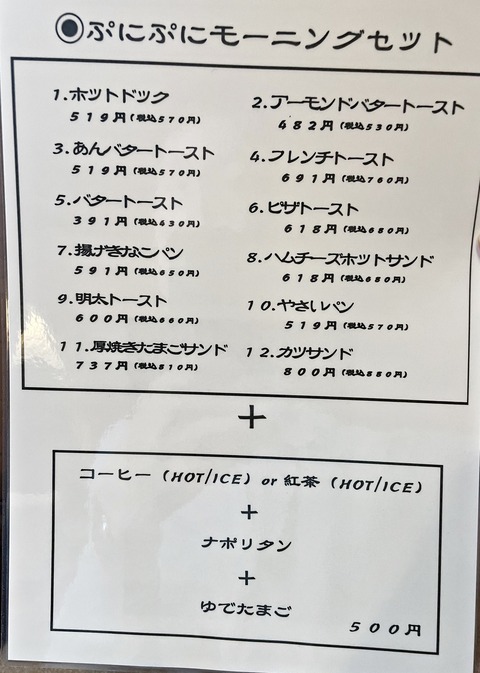 ◉ぷにぷにモーニングセット
1.ホットドック
519円(税込570円)
2.アーモンドバタートースト
482円(税込530円)
3.あんバタートースト
519円(税込570円)
4.フレンチトースト
691円(税込760円)
5.バタートースト
391円(税込430円)
6.ピザトースト
618円(税込680円)
7.揚げきなこパン
591円(税込650円)
8.ハムチーズホットサンド
618円(税込680円)
9.明太トースト
600円(税込660円)
10.やさいパン
519円(税込570円)
11.厚焼きたまごサンド
737円(税込810円)
12.カツサンド
800円(税込880円)
+
コーヒー(HOT/ICE) or 紅茶(HOT/ICE)
+
ナポリタン
+
ゆでたまご
500円